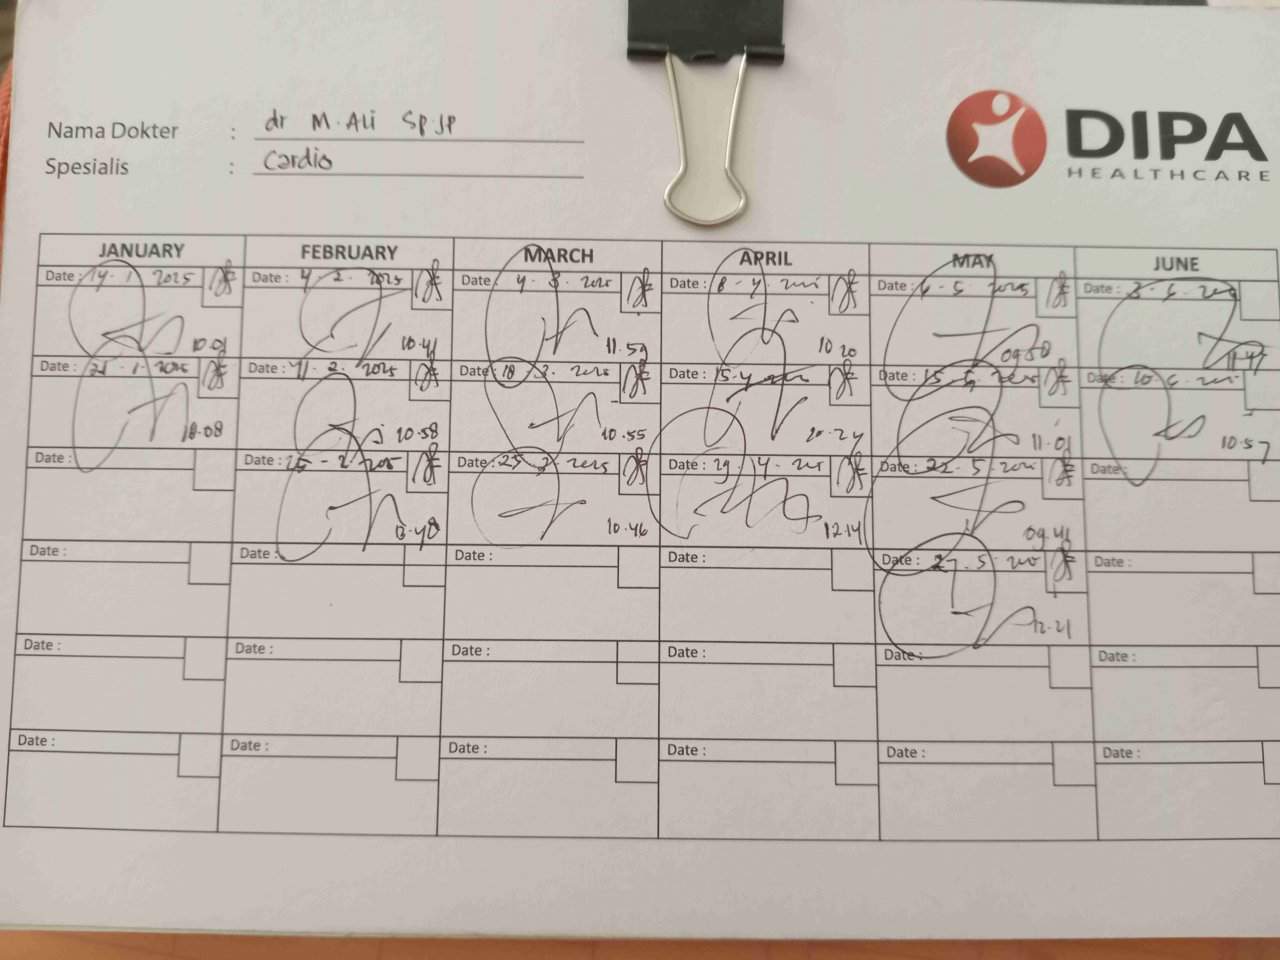 Nama Dokter : dr M. Ali Sp.JP
Spesialis : Cardio
DIPA
HEALTHCARE
JANUARY FEBRUARY MARCH APRIL MAY JUNE
Date : 14 . 1 2025 Date : 4 . 2 . 2025 Date : 4 . 3 . 2025 Date : 8 - 4 . Date : 6 - 5 . 2025 Date : 3 - 6 .
10.41 11.59 10 20 11.47
Date : 21 . 1 . 2025 Date : 11 . 2 . 2025 Date : 18 . 3 . 2025 Date : 15 . 4 Date : 15 . 5 Date : 10 . 6 .
10.08 10.58 10.55 11.01 10.57
Date : Date : 25 - 2 . Date : 25 . 3 . 2025 Date : 29 . Date : 22 . 5 . Date :
10.46 12.14 09.41
Date : Date : Date : Date : Date : 27 . 5 . Date :
12.21
Date : Date : Date : Date : Date : Date :
Date : Date : Date : Date : Date : Date :